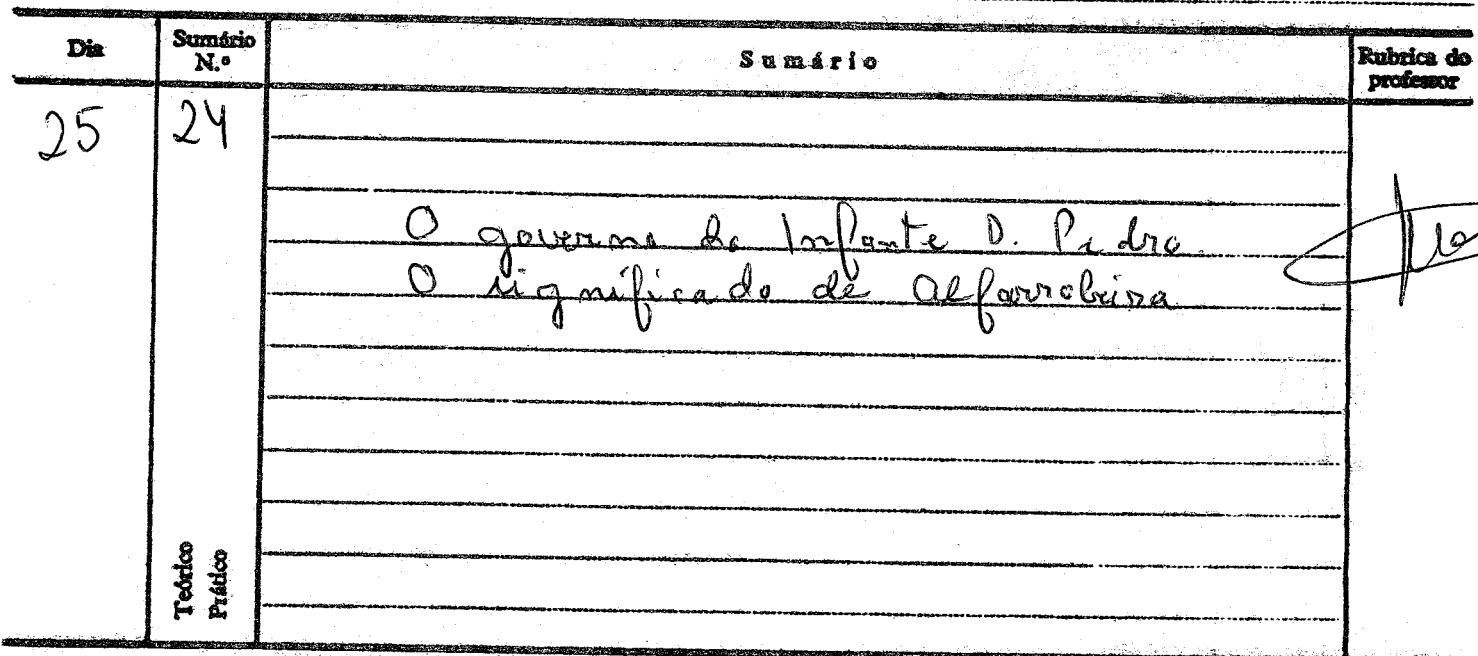 Dia Sumário N.º Sumário Rubrica do professor
25 24
O governo do Infante D. Pedro.
O significado de Alfarrobeira
Teórico
Prático